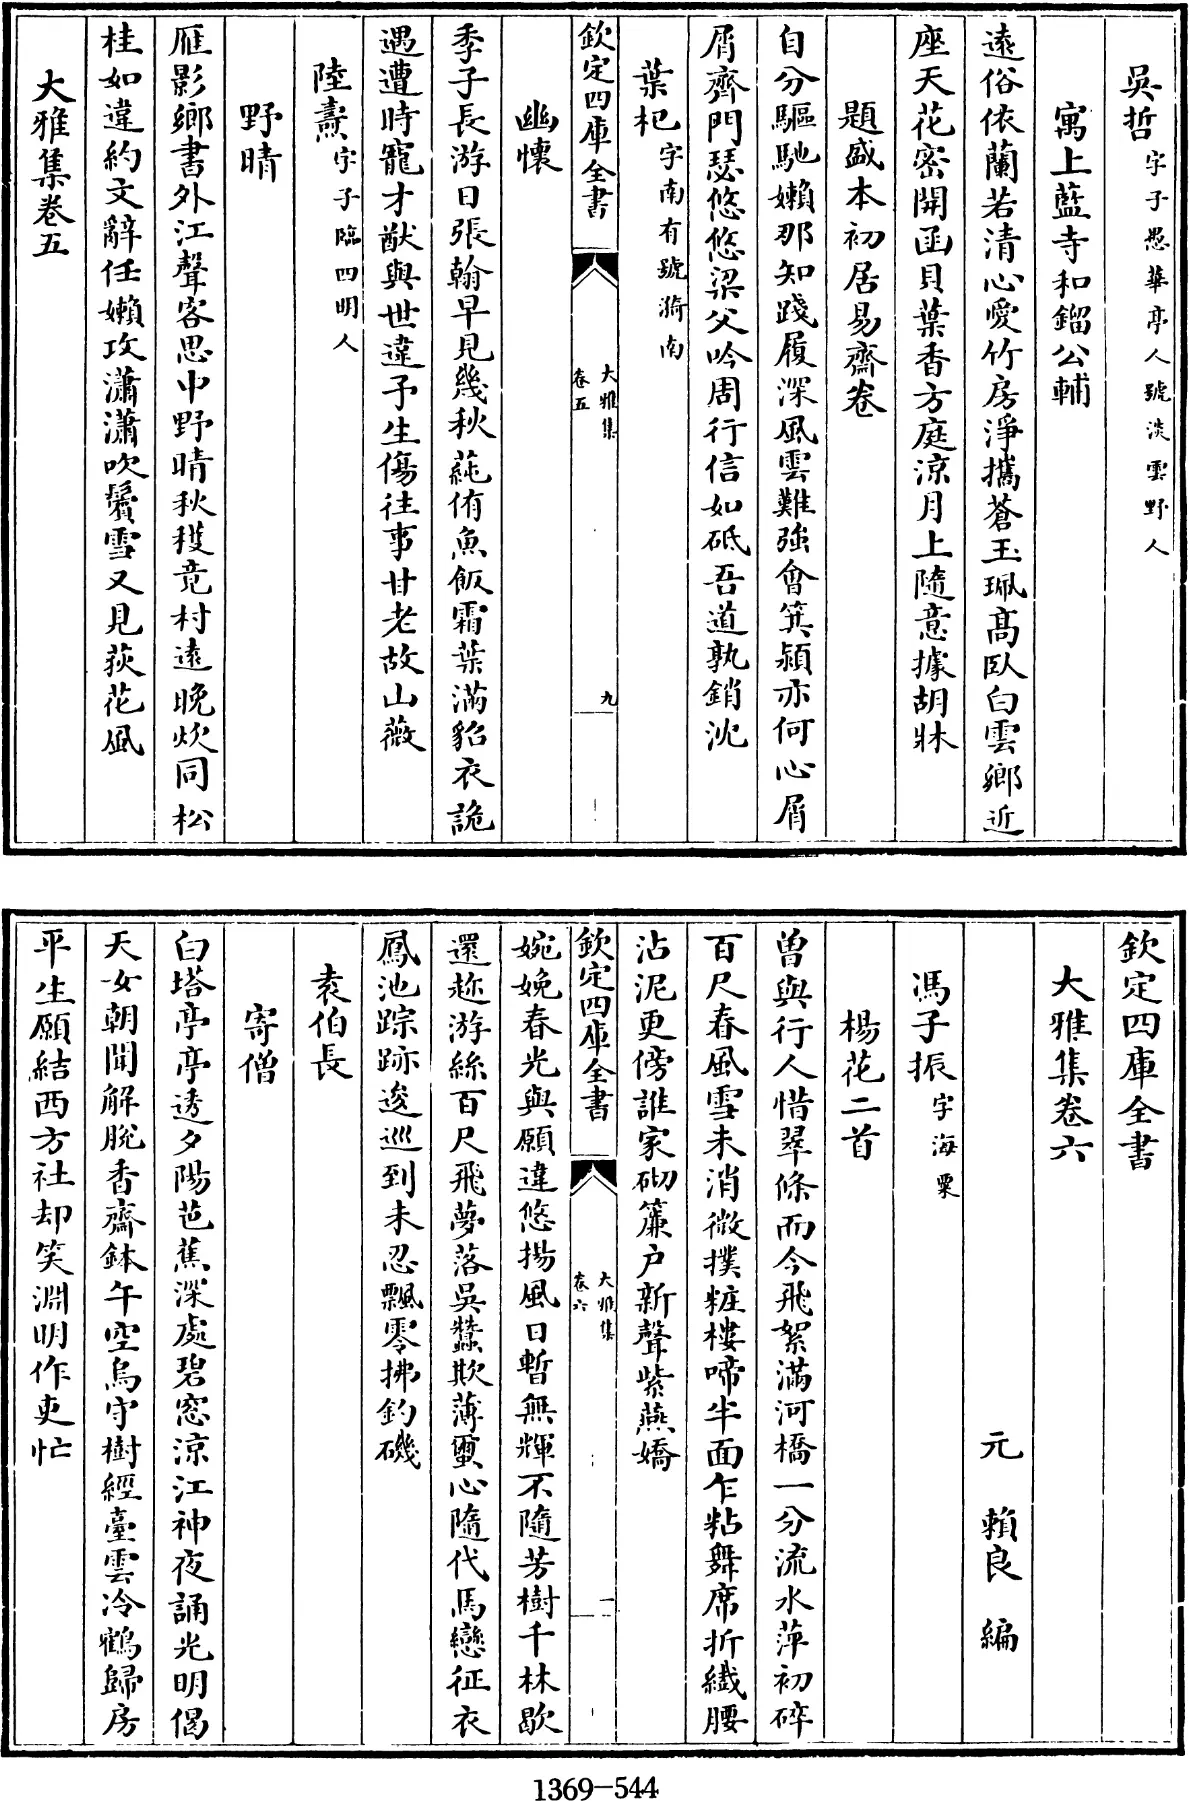 吳哲字子愚華亭人號淡雲野人
寓上藍寺和鎦公輔
遠俗依蘭若清心愛竹房淨攜蒼玉珮髙臥白雲鄉近
座天花密開函貝葉香方庭涼月上隨意據胡牀
題盛本初居易齋卷
自分驅馳嬾那知踐履深風雲難強會箕潁亦何心屑
屑齊門瑟悠悠梁父吟周行信如砥吾道孰銷沈
葉杞字南有號漪南
欽定四庫全書
大雅集
卷五
九
幽懷
季子長游日張翰早見幾秋蓴侑魚飯霜葉滿貂衣詭
遇遭時寵才猷與世違予生傷往事甘老故山薇
陸燾字子臨四明人
野晴
雁影鄉書外江聲客思中野晴秋穫竟村遠晚炊同松
桂如違約文辭任嬾攻瀟瀟吹鬢雪又見荻花風
大雅集卷五
欽定四庫全書
大雅集卷六
元 賴良 編
馮子振字海粟
楊花二首
曽與行人惜翠條而今飛絮滿河橋一分流水萍初碎
百尺春風雪未消微撲粧樓啼半面乍粘舞席折纖腰
沾泥更傍誰家砌簾户新聲紫燕嬌
欽定四庫全書
大雅集
卷六
一
婉娩春光與願違悠揚風日暫無輝不隨芳樹千林歇
還趂游絲百尺飛夢落吳蠶欺薄繭心隨代馬戀征衣
鳳池踪跡逡巡到未忍飄零拂釣磯
袁伯長
寄僧
白塔亭亭透夕陽芭蕉深處碧窓涼江神夜誦光明偈
天女朝聞解脫香齋鉢午空烏守樹經臺雲冷鶴歸房
平生願結西方社却笑淵明作吏忙
1369-544